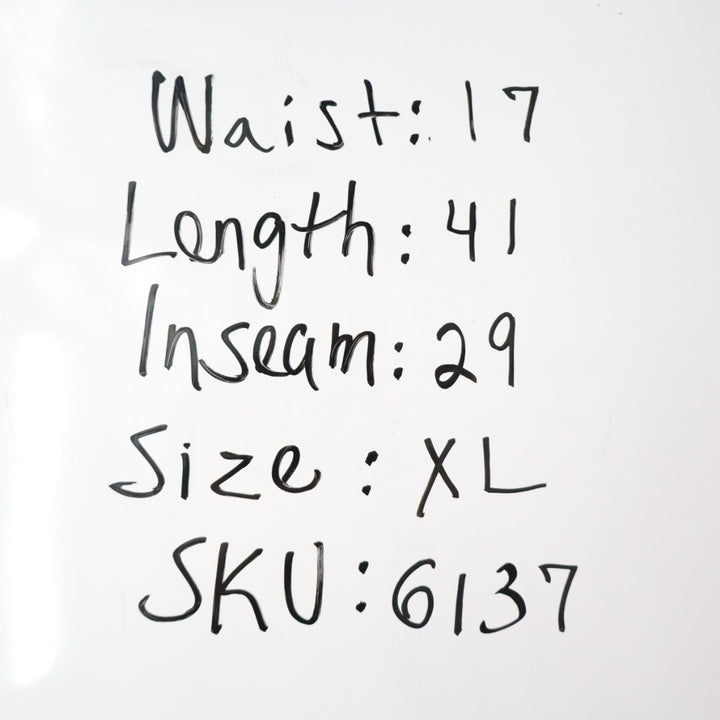 Waist: 17
Length: 41
Inseam: 29
Size: XL
SKU: 6137